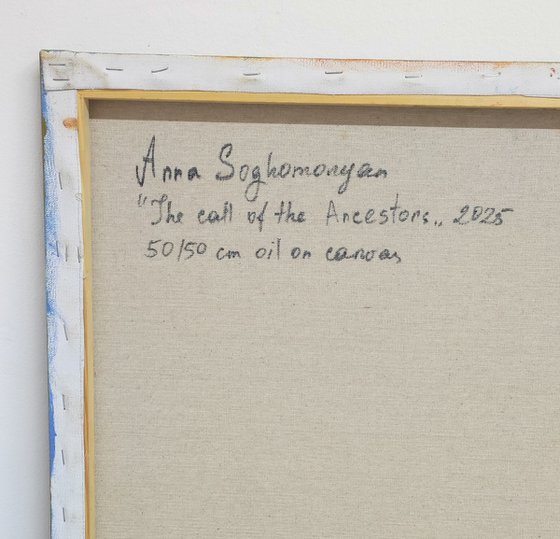 Anna Soghomonyan
"The call of the Ancestors„ 2025
50/50 cm oil on canvas